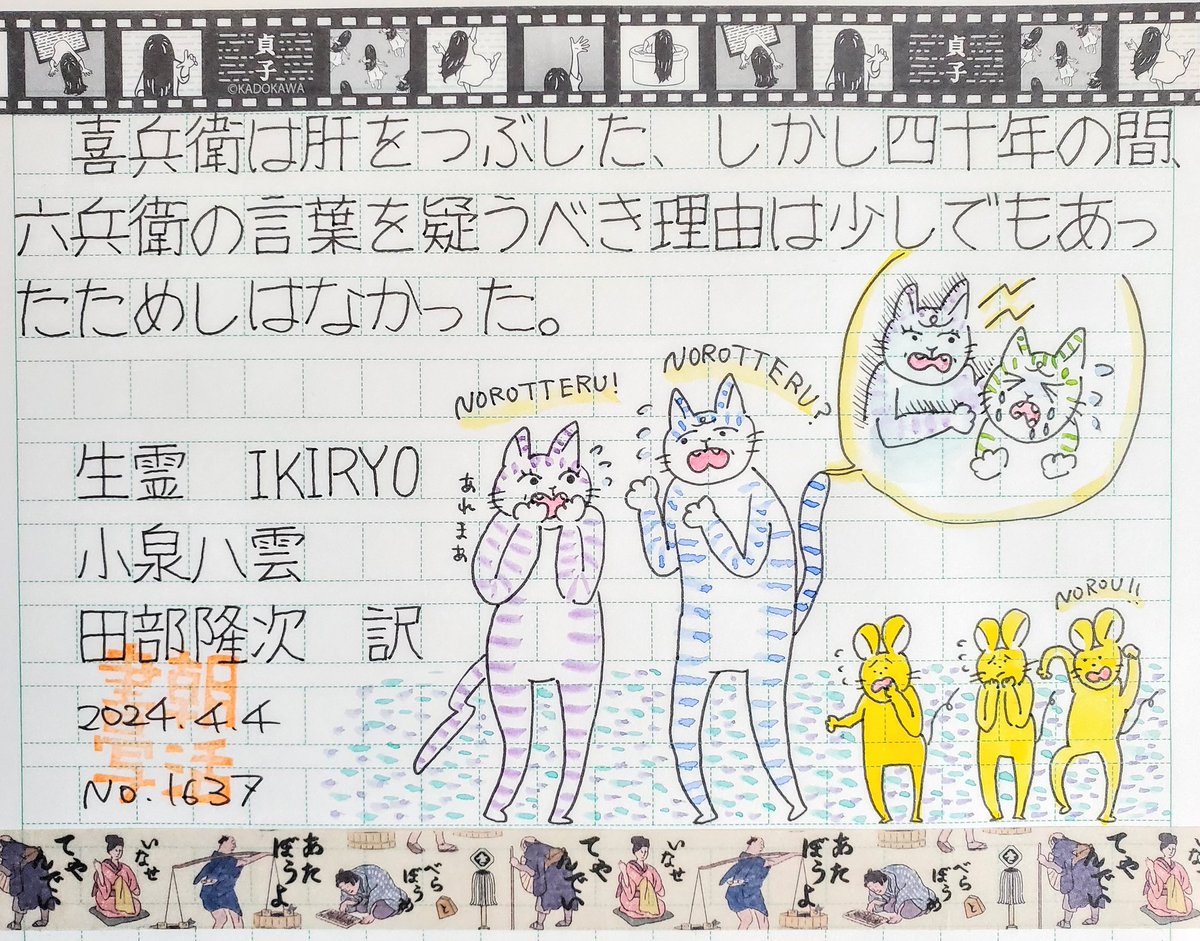 貞子
©KADOKAWA
貞子
喜兵衛は肝をつぶした、しかし四十年の間、
六兵衛の言葉を疑うべき理由は少しでもあっ
たためしはなかった。
NOROTTERU!
NOROTTERU?
あれまあ
生霊 IKIRYO
小泉八雲
田部隆次 訳
NOROU!!
朝活書写
2024.4.4
No.1637
てやんでい
いなせ
あたぼうよ
べらぼうめ
と
てやんでい
いなせ
あたぼうよ
べらぼうめ
と
てやんでい
いなせ